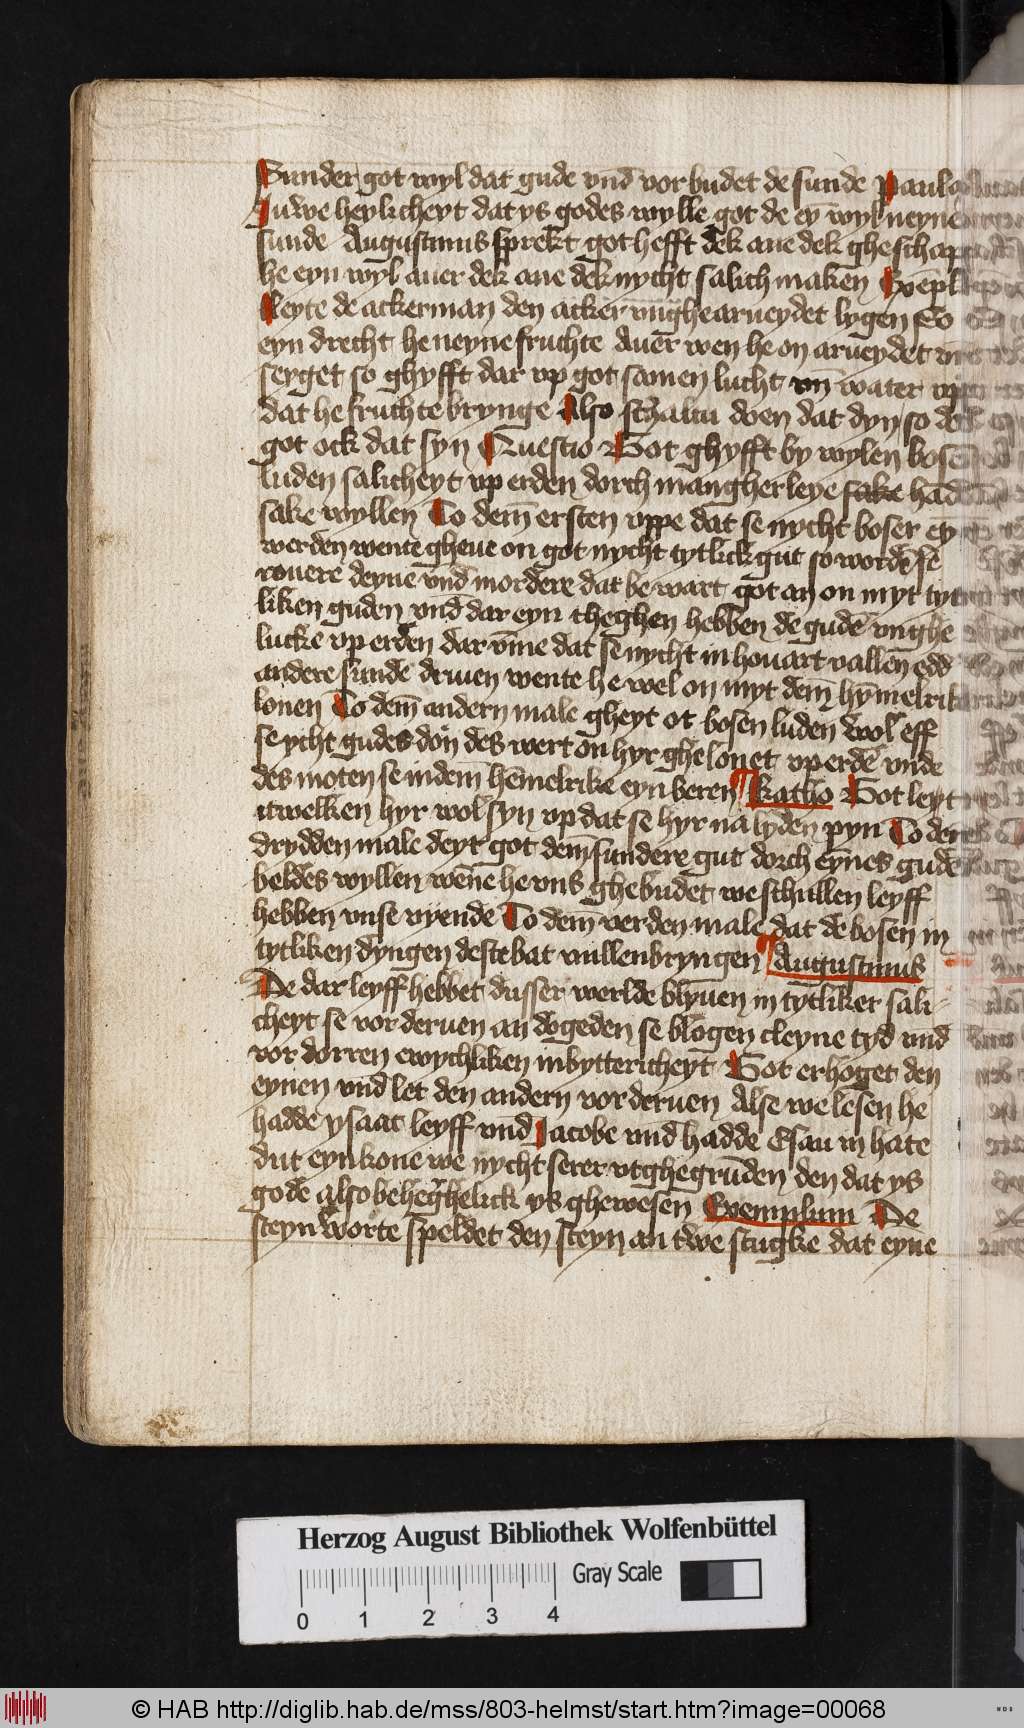 Sunder got wyl dat gude vnd̄ vor budet de sunde Paulo
Juwe heylicheyt dat ys godes wylle got de eȳ wyl neyne
sunde Augustinus sprekt got hefft dek ane dek gheschap
he eyn wyl auer dek ane dek nycht salich maken Exēpl
Leyte de ackerman den acker vnghearueydet lygen So
eyn drecht he neyne fruchte Auer wen he on arueydet vn̄
seyget so ghyfft dar vp got samen lucht vn̄ water vp
dat he fruchte brynge Also schaltu doen dat dyn so doyt
got ock dat syn Questio Got ghyfft by wylen bosen
luden salicheyt vp erden dorch mangherleye sake hād
sake wyllen To dem̄ ersten vppe dat se nycht boser ey
werden wente gheue on got nycht tytlick gut so wordē se
rouere deyue vnd̄ mordere dat be wart got an on myt tyt
liken guden vnd̄ dar eyn theghen hebben de gudē vnghe
lucke vp erden dar vm̄e dat se nycht in houart vallen edd
andere sunde dryuen wente he wel on myt dem̄ hȳmelrik
lonen To dem̄ andern male gheyt ot bosen luden wol eff
se ycht gudes don des wert on hyr ghelonet vp erdē vnde
des moten se in dem hēmelrike eyn beren Ratho Got leyt
itwelken hyr wol syn vp dat se hyr na lyden pyn To dem
drydden male deyt got dem̄ sundere gut dorch eynes gudē
beldes wyllen wēne he vns ghebudet we schullen leyff
hebben vnse vyende To dem̄ verden male dat de bosen in
tytliken dyngen deste bat vullenbryngen Augustinus
De dar leyff hebbet dusser werlde blyuen in tytliker sali
cheyt se vor deruen an dogeden se blogen cleyne tyd vnd
vor dorren ewychliken in bytterícheyt Got erhoget den
eynen vnd̄ let den andern vor deruen Alse we lesen he
hadde ysaac leyff vnd Jacobe vnd hadde Esau in hate
Dut eyn kone we nycht serer vtghegrunden den dat ys
gode also beheghelick ys ghewesen Exemplum De
steyn worte speldet den steyn an twe stugke dat eyne
Herzog August Bibliothek Wolfenbüttel
Gray Scale
0 1 2 3 4
© HAB http://diglib.hab.de/mss/803-helmst/start.htm?image=00068